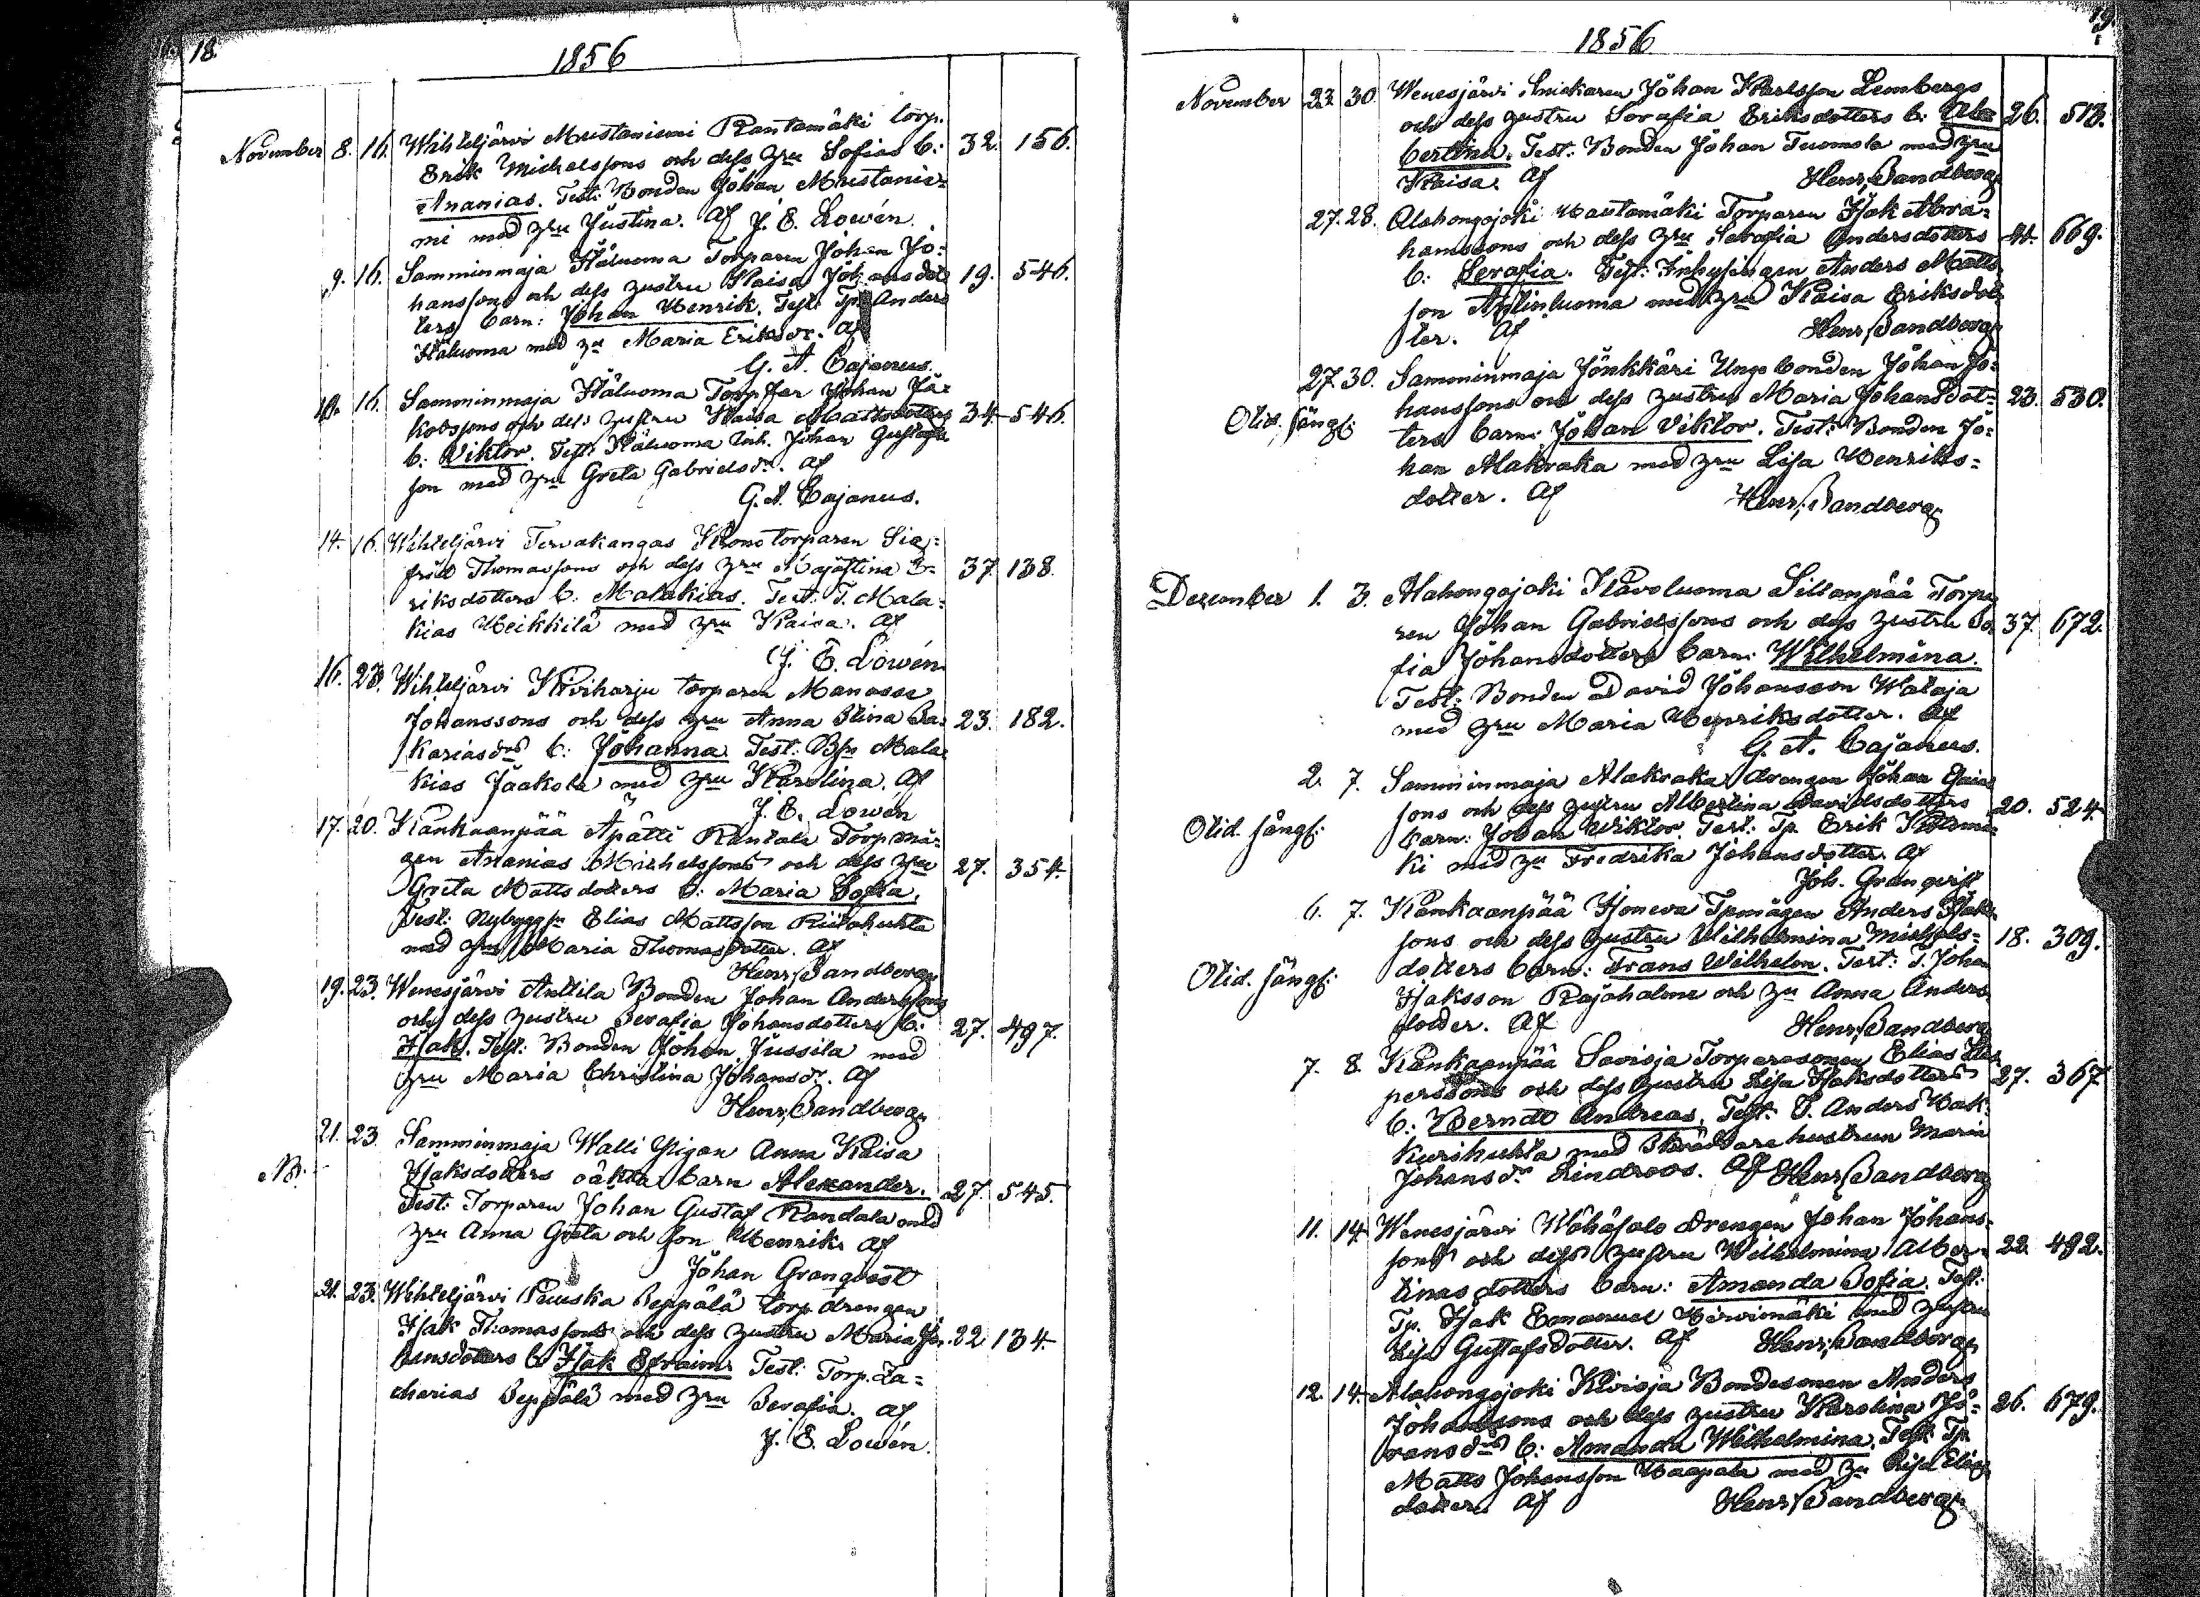 18.
1856
November 8. 16. Wihteljärvi Mustaniemi Rantamäki torp.
Erik Michelssons och dess hru Sofias b: 32. 156.
Ananias. Test: Bonden Johan Mustanie-
mi med hru Justina. Af J. E. Lowén.
9. 16. Samminmaja Torparen Johan Jo-
hanssons och dess hustru Kaisa Johansdot- 19. 546.
ters barn: Johan Henrik. Test: Tp Anders
med hu Maria Eriksdr. Af
G. A. Cajanus.
16. Samminmaja Johan Ja-
kobssons och dess hustru Kaisa Mattsdotters 34. 546.
b: Viktor. Test: Johan Gustafs-
son med hru Greta Gabrielsdr. af
G. A. Cajanus.
14. 16. Wihteljärvi Tervakangas Kronotorparen Sig-
frid Thomassons och dess hru Majastina E- 37. 138.
riksdotters b: Malakias. Test: T. Mala-
kias Heikkilä med hru Kaisa. Af
J. E. Lowén
16. 23. Wihteljärvi Kiviharju torparen Manasse
Johanssons och dess hru Anna Stina Sa- 23. 182.
kariasdrs b: Johanna. Test: Bn Mala-
kias Jaakola med hru Karolina. Af
J. E. Lowén
17. 20. Kankaanpää Apätti Rantala Torpmå-
gen Ananias Michelssons och dess hru 27. 354.
Greta Mattsdotters b: Maria Sofia.
Test: Nybygg Elias Mattsson
med hru Maria Thomasdotter. Af
Henr. Sandberg
19. 23. Wenesjärvi Anttila Bonden Johan Anderssons
och dess hustru Serafia Johansdotters b: 27. 497.
Isak. Test: Bonden Johan Jussila med
hru Maria Christina Johansdr. Af
Henr. Sandberg
21. 23. Samminmaja Walli Pigan Anna Kaisa
NB. Isaksdotters oäkta barn Alexander. 27. 545.
Test: Torparen Johan Gustaf Randala med
hru Anna Greta och son Henrik. Af
Johan Granqvist
21. 23. Wihteljärvi Peuska Seppälä torp.drengen
Isak Thomassons och dess hustru Maria Jo- 22. 134.
hansdotters b: Isak Efraim. Test: Torp. Za-
charias Seppälä med hru Serafia. af
J. E. Lowén.
19.
1856
November 23. 30. Wenesjärvi Snickaren Johan Karlsson Lembergs
och dess hustru Serafia Eriksdotters b: Al- 26. 513.
bertina. Test: Bonden Johan Tuomola med hru
Kaisa. Af Henr. Sandberg
27. 28. Alahongojoki Hautamäki Torparen Isak Abra-
hamssons och dess hru Serafia Andersdotters 44. 669.
b: Serafia. Test: Inhysingen Anders Matts-
son med hru Kaisa Eriksdot-
ter. Af Henr. Sandberg
27. 30. Samminmaja Jönkkäri Ungebonden Johan Jo-
hanssons och dess hustru Maria Johansdot- 23. 530.
Olid. sängf: ters barn: Johan Viktor. Test: Bonden Jo-
han Alakraka med hru Lisa Henriks-
dotter. Af Henr. Sandberg
December 1. 3. Alahongojoki Sillanpää Torpa-
ren Johan Gabrielssons och dess hustru So- 37. 672.
fia Johansdotters barn: Wilhelmina.
Test: Bonden David Johansson Wataja
med hru Maria Henriksdotter. Af
G. A. Cajanus.
2. 7. Samminmaja Alakraka drengen Johan Esaias-
sons och dess hustru Albertina Davidsdotters 20. 524.
Olid. sängf: barn: Johan Wiktor. Test: Tp. Erik
ki med hu Fredrika Johansdotter. Af
Joh. Granqvist
6. 7. Kankaanpää Tpmågen Anders Isaks-
sons och dess hustru Wilhelmina Michels- 18. 309.
Olid. sängf: dotters barn: Frans Wilhelm. Test: T. Johan
Isaksson Rajahalme och hu Anna Anders-
dotter. Af Henr. Sandberg
7. 8. Kankaanpää Savioja Torparesonen Elias
perssons och dess hustru Lisa Isaksdotters 27. 367
b: Berndt Andreas. Test: T. Anders
med hustrun Maria
Johansdr Lindroos. Af Henr. Sandberg
11. 14. Wenesjärvi Wähäsalo Drengen Johan Johans-
sons och dess hustru Wilhelmina Alber- 22. 492.
tinasdotters barn: Amanda Sofia. Test:
Tp. Isak Emanuel Hirvimäki med hustru
Lisa Gustafsdotter. Af Henr. Sandberg
12. 14. Alahongojoki Kivioja Bondesonen Anders
Johanssons och dess hustru Karolina Jö- 26. 679.
ransdrs b: Amanda Wilhelmina. Test: Tp.
Matts Johansson Haapala med hu Lisa Elias-
dotter. Af Henr. Sandberg